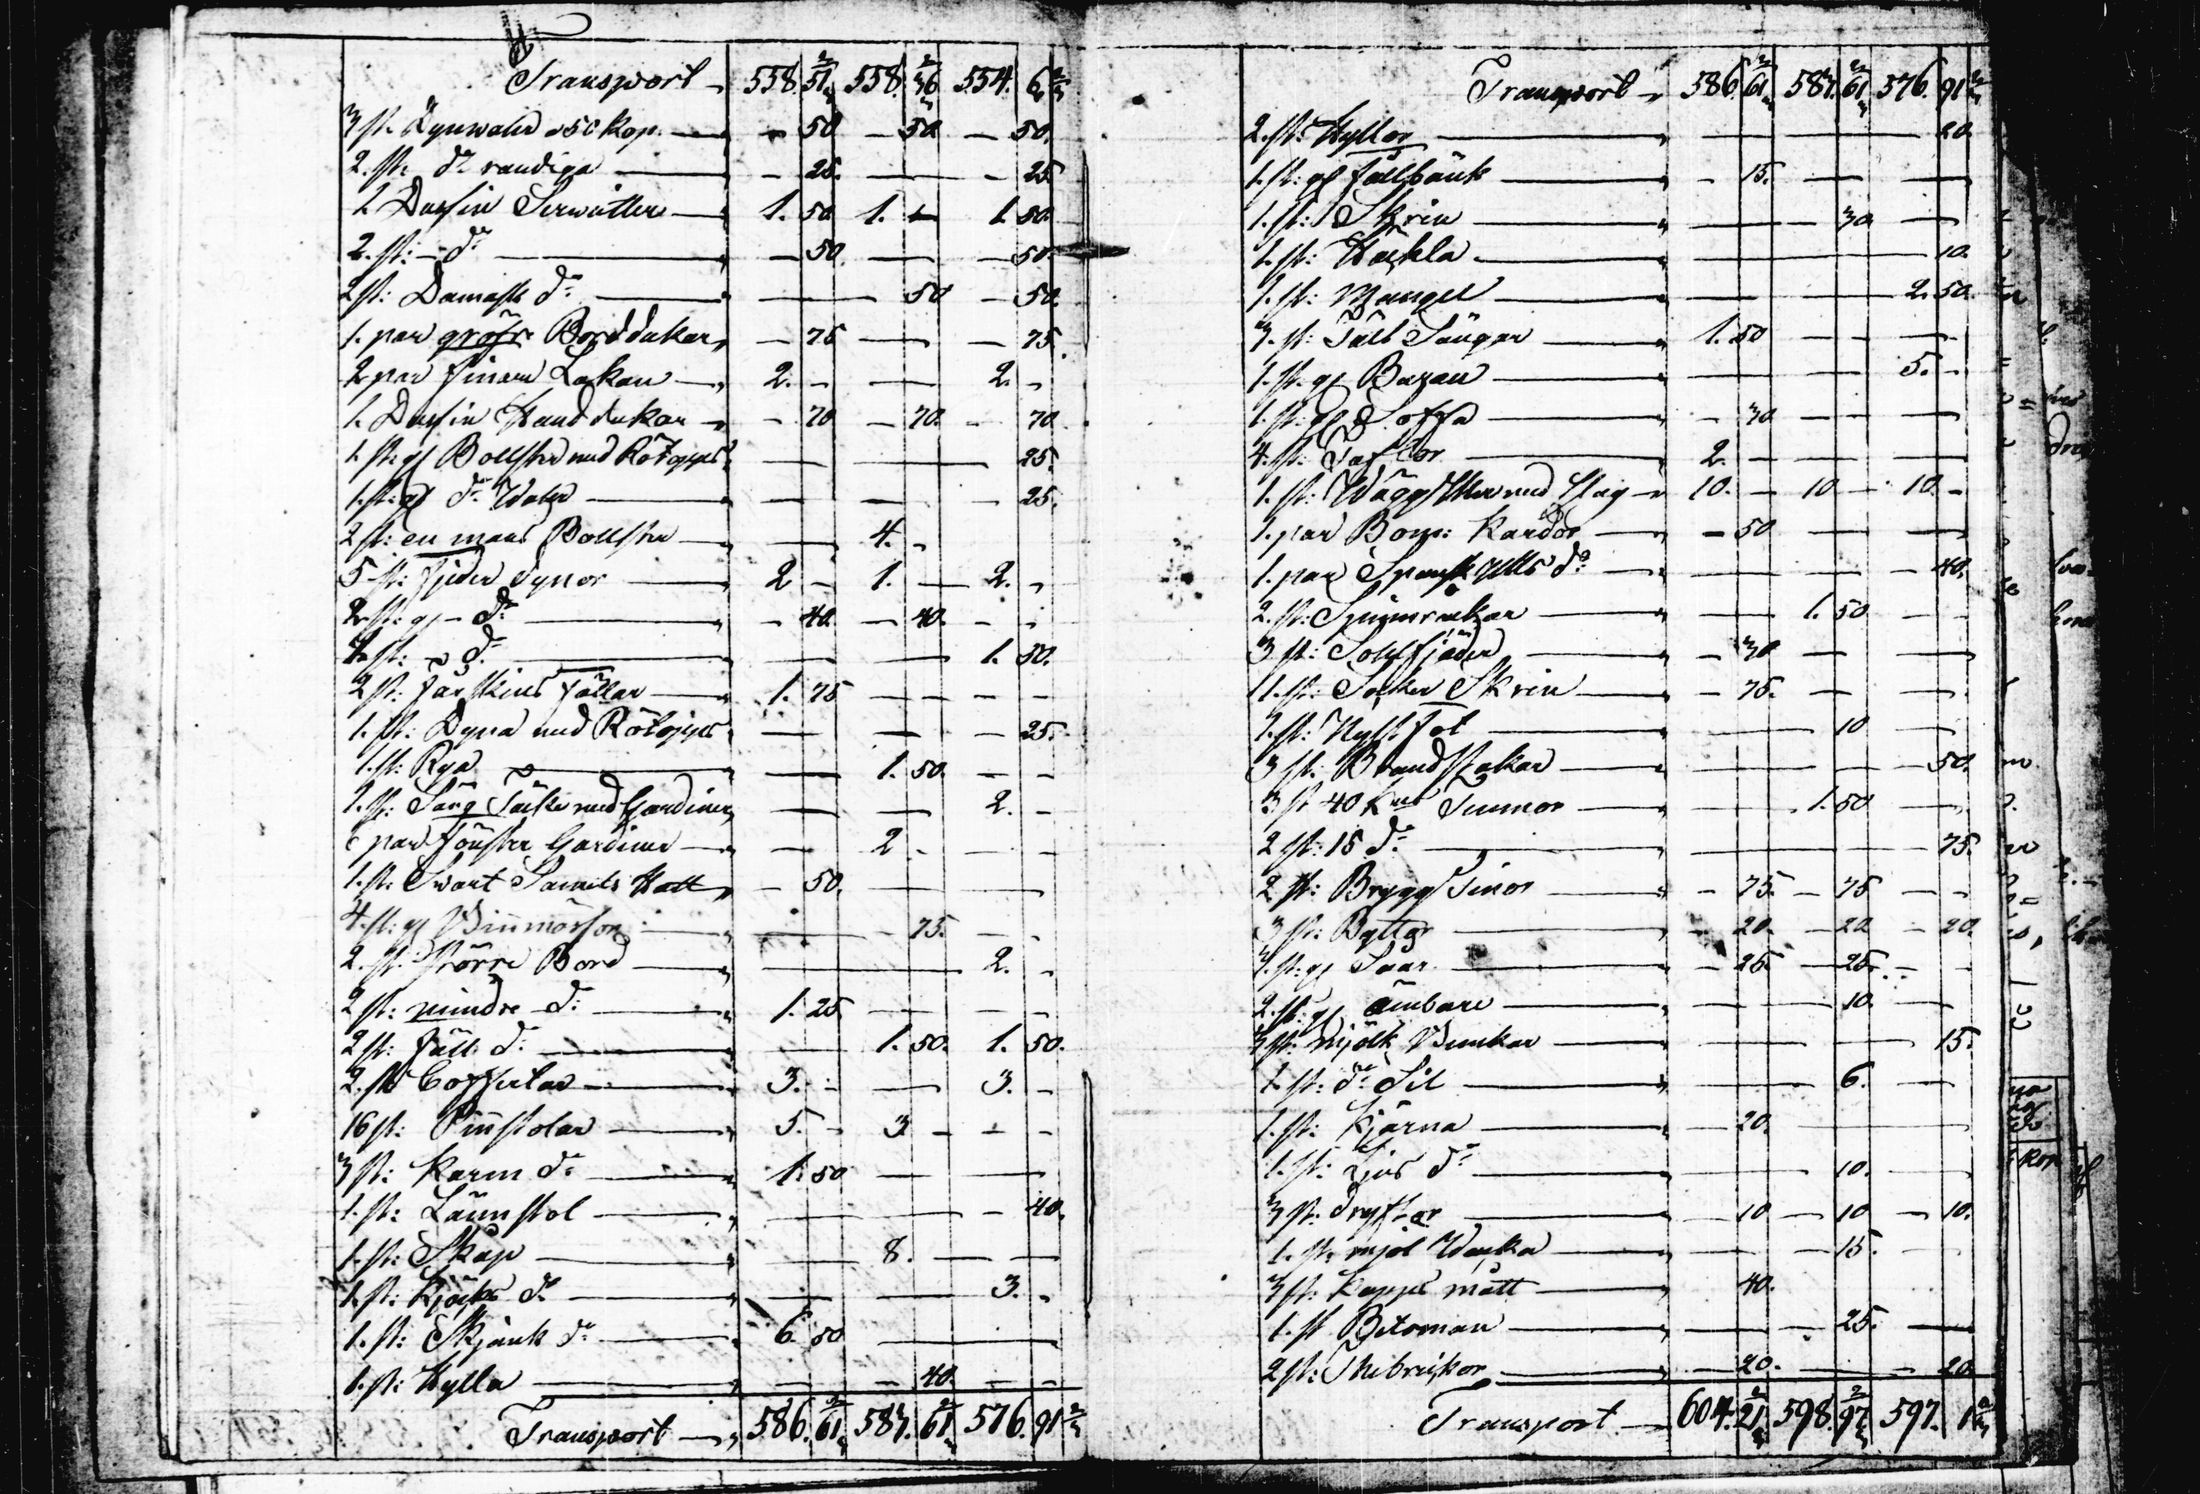 Transport 558. 51 2/3 558. 36 2/3 554. 6 2/3
3 st. Dynwahr a 50 kop. - 50 - 50 - 50.
2. st: do randiga - 25. - 25
1. Dussin Serwitter 1. 50 1. - 1. 50.
2. st: do - 50. - 50.
2 st: Damask do 50 - 50.
1. par gröfre Borddukar - 75 - 75.
2 par finare Lakan 2. - 2. -
1. Dussin Handdukar - 70 - 70. - 70
1. st: gl Bollster med Rötoyss 25.
1. st: gl do Watn 25.
2 st: en mans Bollster 4. -
5 st: fjäder Dynor 2 - 1. - 2. -
2 st: gl - do - 40. - 40. - -
st: do 1. 50.
2 st: fårskins fällar 1. 75 - - - -
1. st: Dyna med Rötoyss 25.
1. st: Rya 1. 50. - -
1. st: Säng Täcke med Gardiner 2. -
par fönster Gardiner 2 - - -
1. st: Swart Hatt - 50.
4. st: gl 75. - -
2. st: större Bord 2. -
2 st: mindre do 1. 25 - - -
2 st: fäll do 1. 50. 1. 50.
2. st Coffertar 3. - 3. -
16 st: Pinstolar 5. - 3 - - -
3 st: Karm do 1. 50
1. st: Länstol - 40.
1. st: Skåp 8.
1. st: Kjöks do 3. -
1. st: Skjänk do 6. 50
1. st: Hylla - 40. - -
Transport 586. 61 2/3 587. 61 2/3 576. 91 2/3
Transport 586. 61 2/3 587. 61 2/3 576. 91 2/3
2. st: Hyllor 20.
1. st: gl fällbänk - 15.
1. st: Skrin 30.
1. st: Häckla 10.
1. st: Mangel 2. 50.
3. st: Fält Sängar 1. 50 - - -
1. st. gl 5. -
1. st: gl Soffa - 30
4. st: Taflor 2.
1. st: Wäggklko med slag 10. - 10 - 10. -
1. par Bom: Kardor - 50
1. par do - 40.
2. st: Spinnrockar 1. 50
3 st: fjäder - 30
1. st: Socker Skrin - 75.
1. st: fat 10
3 st: Brandstakar 50.
3 st 40 Knrs Tunnor 1. 50
2 st: 15 do 75.
2 st: Brygg Tinor - 75. - 75 - -
3 st: Byttor - 20. - 20 - 20.
st: gl Såar - 25. - 25. - -
2. st: gl ämbare - 10.
st: Mjölk Bunkar 15.
1. st: do Sil 6.
1. st: Kjärna - 20.
1. st: Ljus do 10.
3 st: Dryftor 10 - 10 - 10.
1. st: mjöl 15.
3 st: Kapps mått 40.
1. st Betsman 25.
2 st: - 20. - 20
Transport 604. 21 2/3 598. 97 2/3 597. 1 2/3